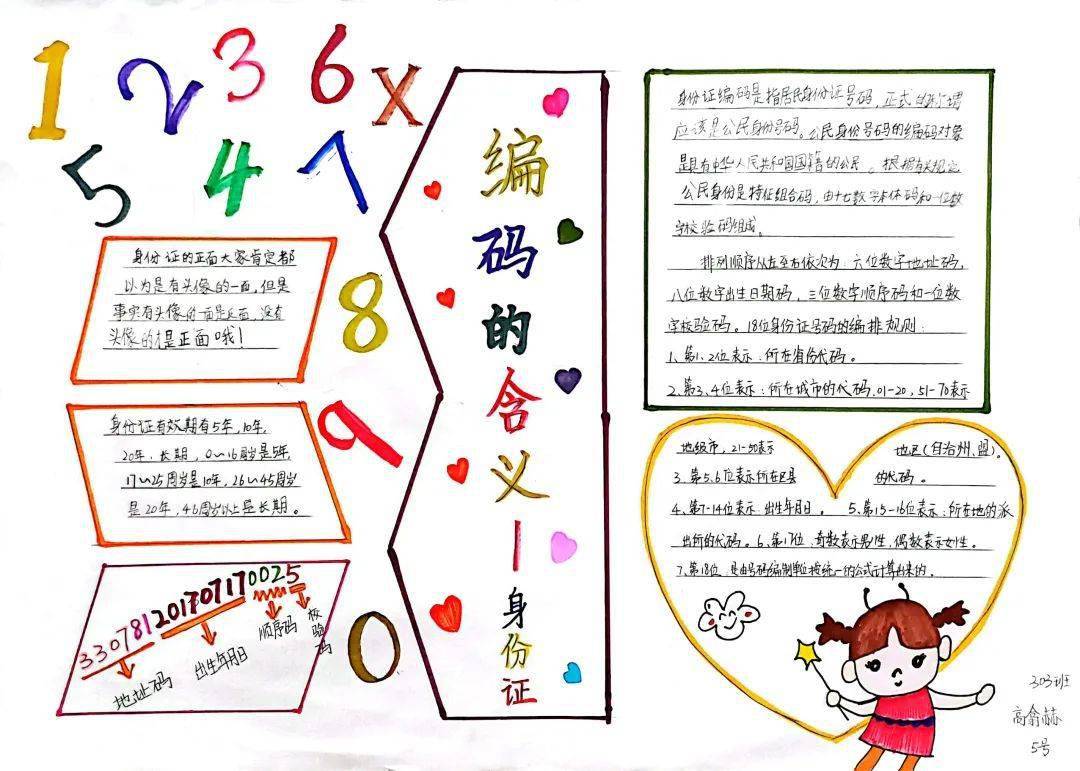 1 2 3 6 X
5 4 7
8
9
0
身份证的正面大家肯定都
以为是有头像的一面,但是
事实有头像的一面是反面,没有
头像的才是正面哦!
身份证有效期有5年,10年,
20年,长期,0~16周岁是5年,
17~25周岁是10年,26~45周岁
是20年,46周岁以上是长期。
330781201707170025
地址码
出生年月日
顺序码
校验码
编码的含义—身份证
身份证编码是指居民身份证号码,正式的称谓
应该是公民身份号码。公民身份号码的编码对象
是具有中华人民共和国国籍的公民。根据有关规定
公民身份是特征组合码,由十七数字本体码和一位数
字校验码组成。
排列顺序从左至右依次为:六位数字地址码,
八位数字出生日期码,三位数字顺序码和一位数
字校验码。18位身份证号码的编排规则:
1、第1、2位表示:所在省份代码。
2、第3、4位表示:所在城市的代码,01-20,51-70表示
地级市,21-50表示 地区(自治州、盟)。
3、第5、6位表示所在区县 的代码。
4、第7-14位表示:出生年月日。 5、第15-16位表示:所在地的派
出所的代码。6、第17位:奇数表示男性,偶数表示女性。
7、第18位:是由号码编制单位按统一的公式计算出来的。
303班
5号